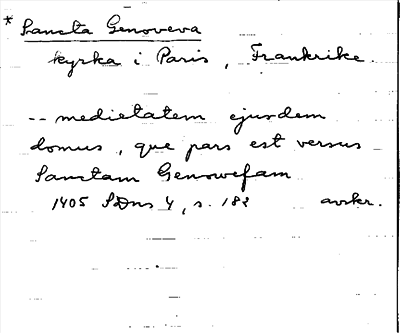 * Sancta Genoveva
kyrka i Paris, Frankrike.
-- medietatem ejusdem
domus, que pars est versus
Sanctam Genowefam
1405 SDns 4, s. 182 avskr.